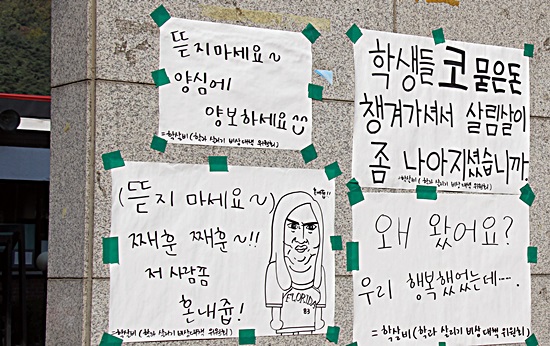 뜯지마세요~
양심에
양보하세요
=학살비(학과 살리기 비상 대책 위원회)
학생들 코 묻은돈
챙겨가셔서 살림살이
좀 나아지셨습니까.
=학살비(학과 살리기 비상대책 위원회)
(뜯지 마세요~)
째훈 째훈~!!
저 사람좀
혼내줍!
=학살비(학과 살리기 비상 대책 위원회)
혼내줍!!
FLORIDA
83
왜 왔어요?
우리 행복했었는데····.
=학살비(학과 살리기 비상 대책 위원회)